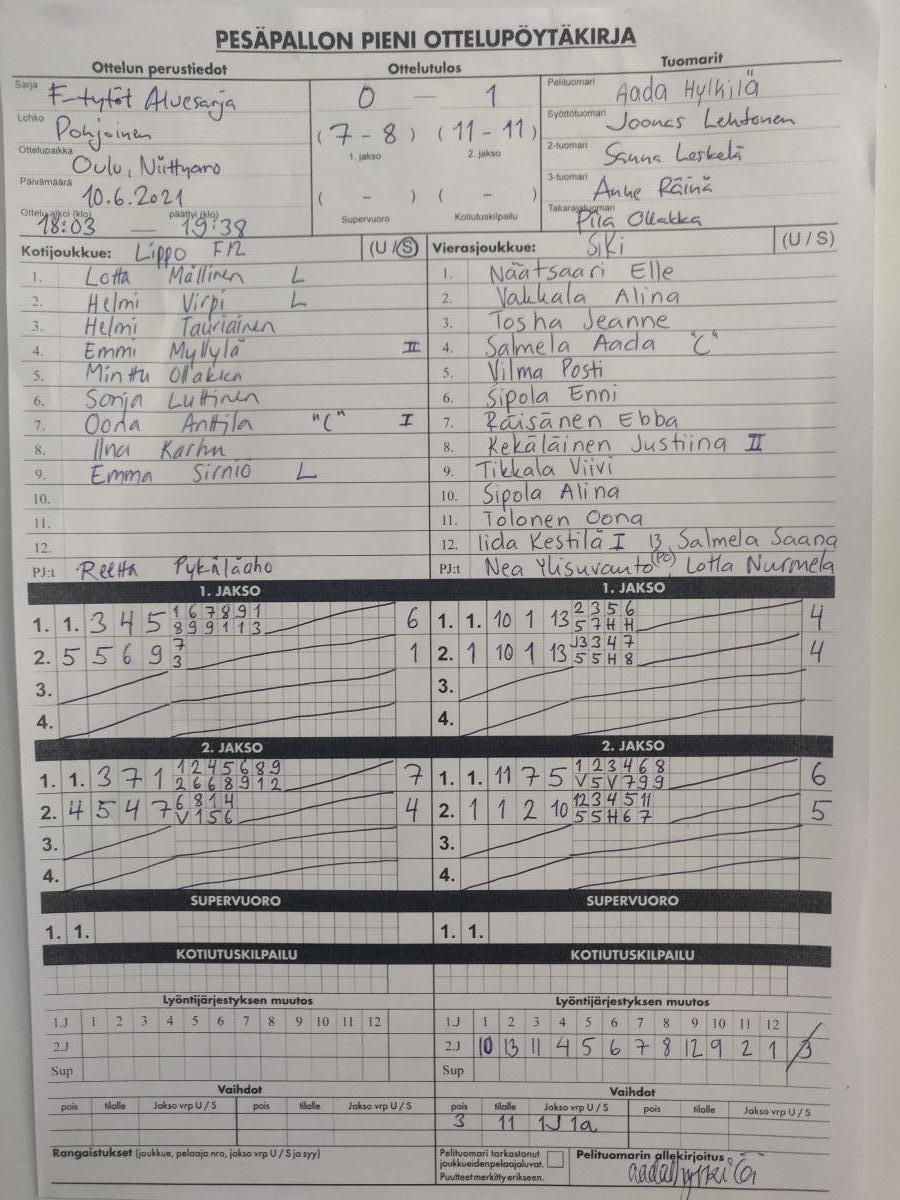 PESÄPALLON PIENI OTTELUPÖYTÄKIRJA
Ottelun perustiedot Ottelutulos Tuomarit
Sarja F-tytöt Aluesarja 0 — 1 Pelituomari Aada Hylkilä
Lohko Pohjoinen (7 - 8) (11 - 11) Syöttötuomari Joonas Lehtonen
1. jakso 2. jakso
Ottelupaikka Oulu, Niittyaro 2-tuomari Sanna Leskelä
Päivämäärä 10.6.2021 ( - ) ( - ) 3-tuomari Anne Räinä
Ottelu alkoi (klo) 18:03 — päättyi (klo) 19:38 Supervuoro Kotiutuskilpailu Takarajatuomari Piia Ollakka
Kotijoukkue: Lippo F12 (U/S) Vierasjoukkue: SiKi (U / S)
1. Lotta Mällinen L 1. Näätsaari Elle
2. Helmi Virpi L 2. Vakkala Alina
3. Helmi Tauriainen 3. Tosha Jeanne
4. Emmi Myllylä II 4. Salmela Aada "C"
5. Minttu Ollakka 5. Vilma Posti
6. Sonja Luttinen 6. Sipola Enni
7. Oona Anttila "C" I 7. Räisänen Ebba
8. Iina Karhu 8. Kekäläinen Justiina II
9. Emma Sirniö L 9. Tikkala Viivi
10. 10. Sipola Alina
11. 11. Tolonen Oona
12. 12. Iida Kestilä I 13. Salmela Saana
PJ:t Reetta Pykäläaho PJ:t Nea Ylisuvanto (PO) Lotta Nurmela
1. JAKSO 1. JAKSO
1. 1. 3 4 5 1 6 7 8 9 1 6 1. 1. 10 1 13 2 3 5 6 4
8 9 9 1 1 3 5 7 H H
2. 5 5 6 9 7 1 2. 1 10 1 13 13 3 4 7 4
3 5 5 H 8
3. 3.
4. 4.
2. JAKSO 2. JAKSO
1. 1. 3 7 1 1 2 4 5 6 8 9 7 1. 1. 11 7 5 1 2 3 4 6 8 6
2 6 6 8 9 1 2 V 5 V 7 9 9
2. 4 5 4 7 6 8 1 4 4 2. 1 1 2 10 12 3 4 5 11 5
V 1 5 6 5 5 H 6 7
3. 3.
4. 4.
SUPERVUORO SUPERVUORO
1. 1. 1. 1.
KOTIUTUSKILPAILU KOTIUTUSKILPAILU
Lyöntijärjestyksen muutos Lyöntijärjestyksen muutos
1.J 1 2 3 4 5 6 7 8 9 10 11 12 1.J 1 2 3 4 5 6 7 8 9 10 11 12
2.J 2.J 10 13 11 4 5 6 7 8 12 9 2 1 3
Sup Sup
Vaihdot Vaihdot
pois tilalle Jakso vrp U / S pois tilalle Jakso vrp U / S pois tilalle Jakso vrp U / S pois tilalle Jakso vrp U / S
3 11 1J 1a
Rangaistukset (joukkue, pelaaja nro, jakso vrp U / S ja syy) Pelituomari tarkastanut Pelituomarin allekirjoitus
joukkueiden pelaajaluvat.
Puutteet merkitty erikseen.